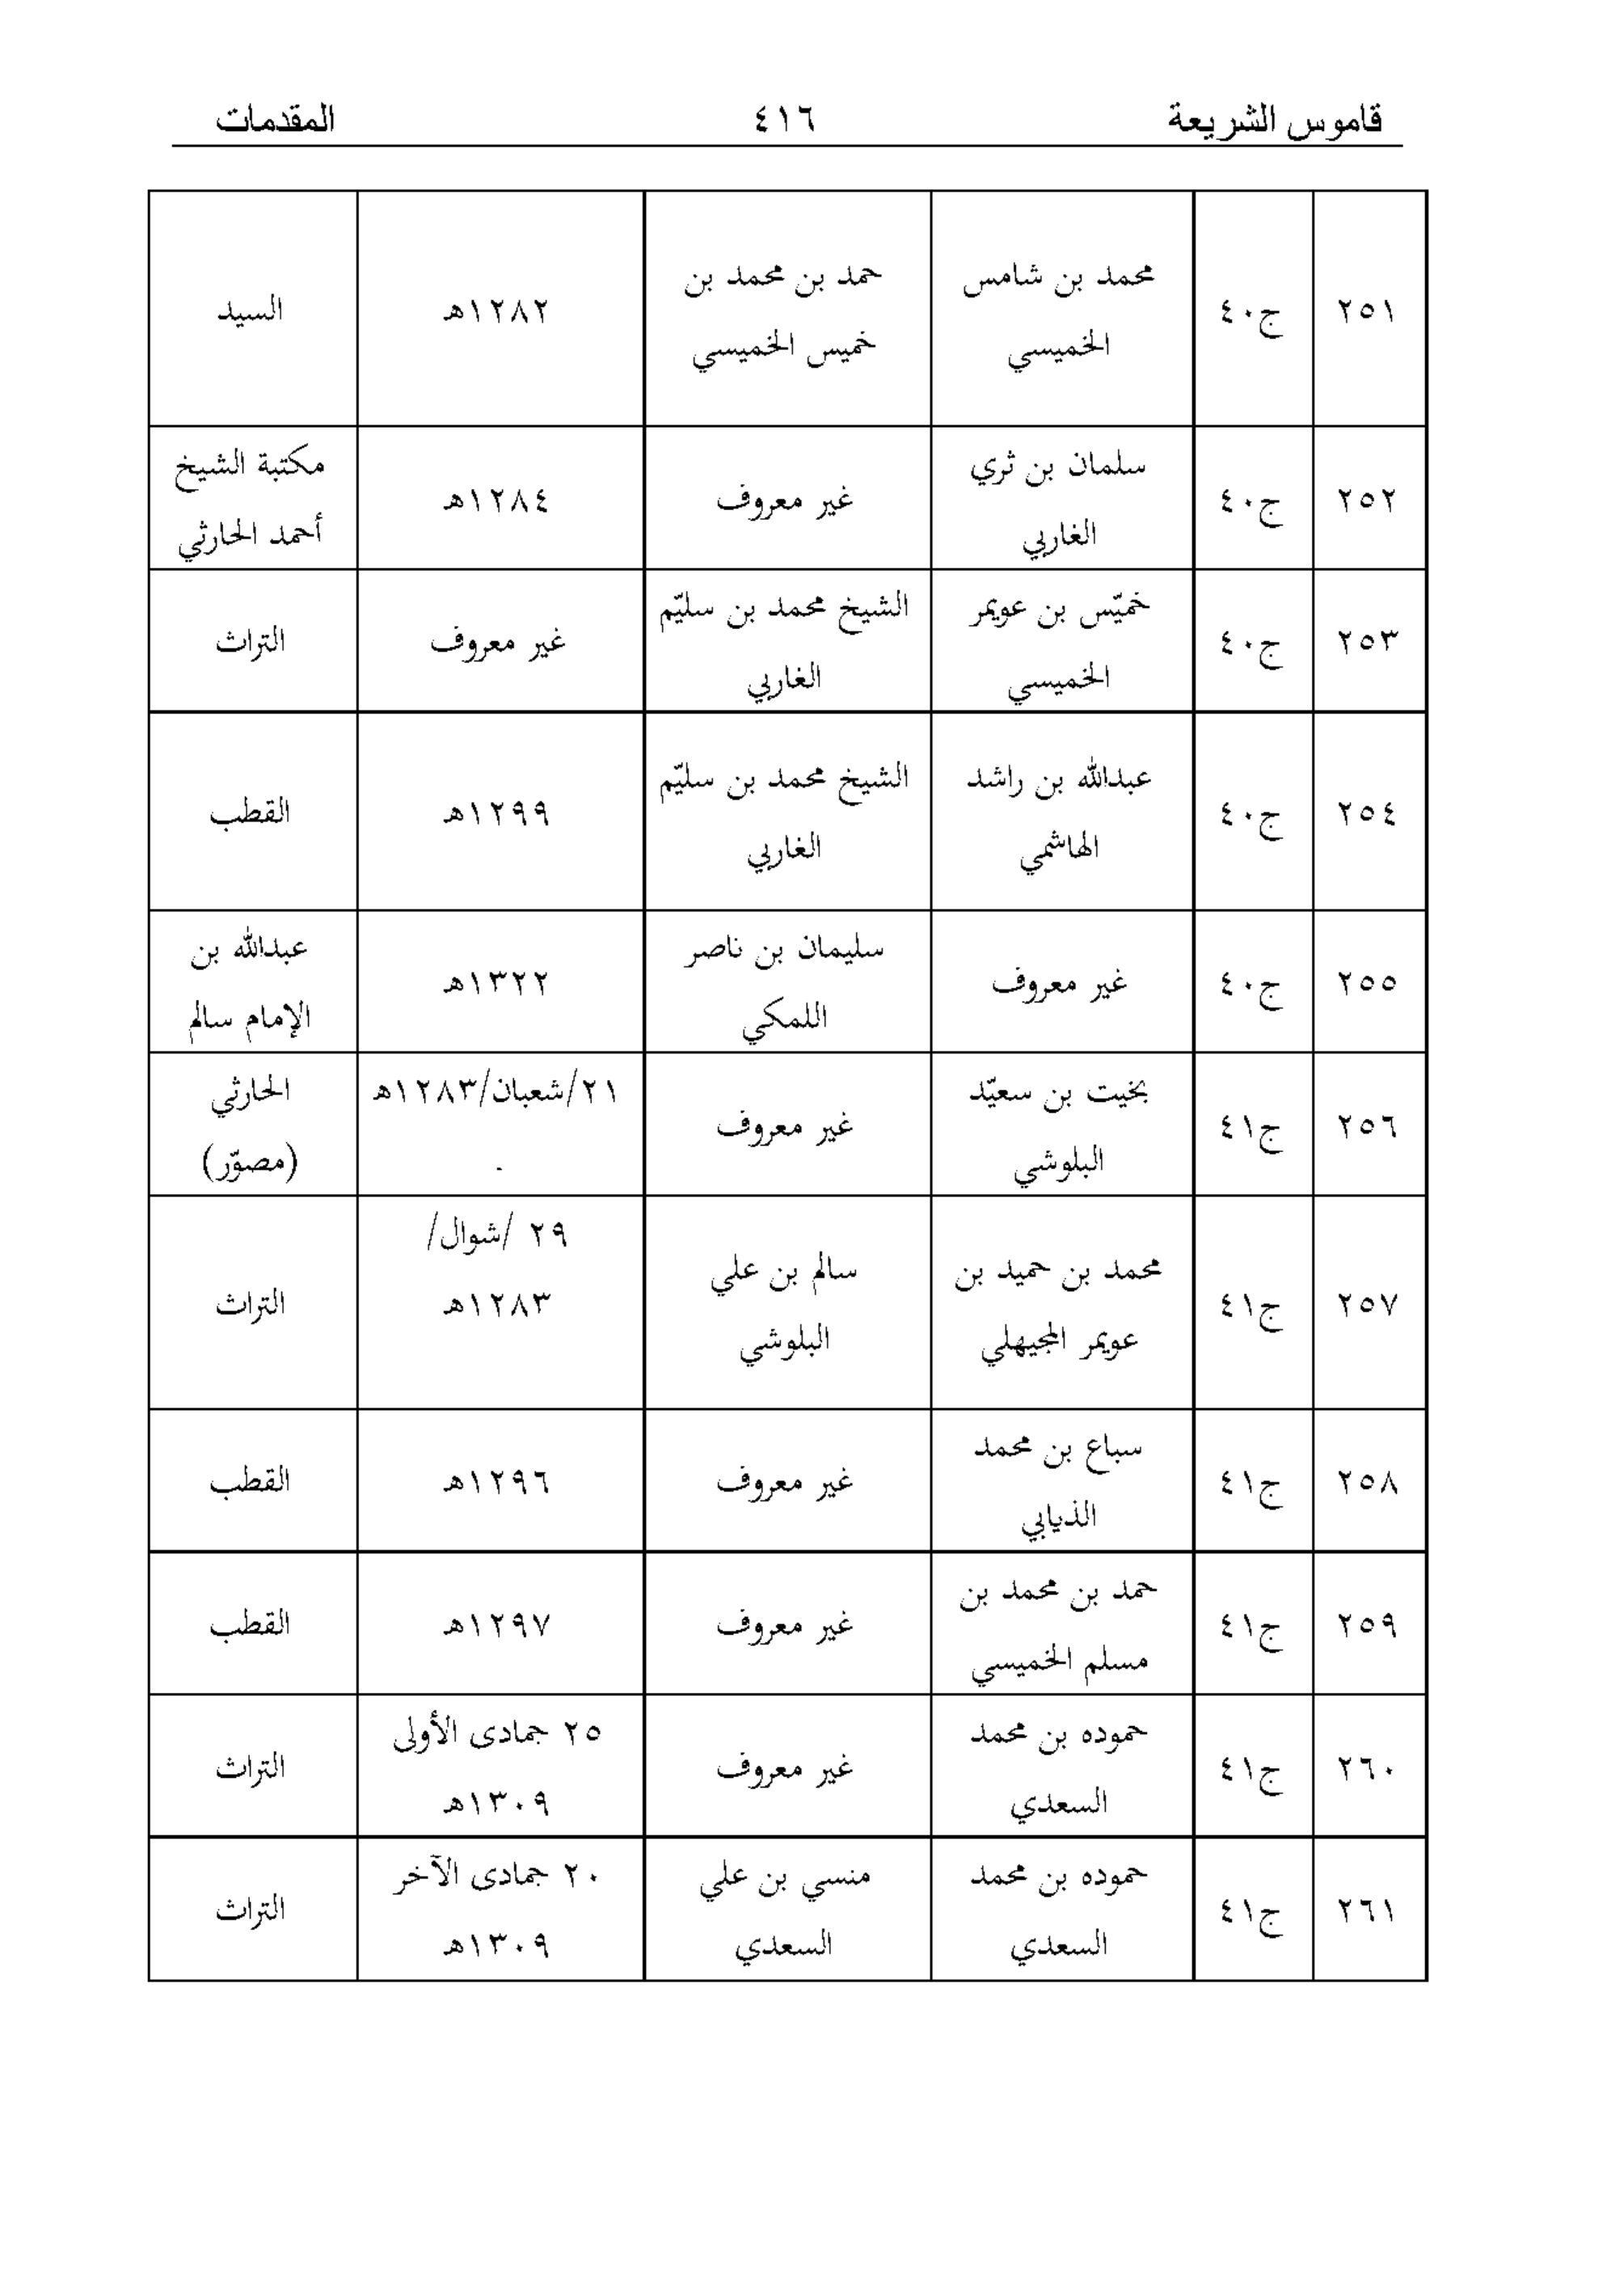 قاموس الشريعة
٤١٦
المقدمات
٢٥١
ج٤٠
محمد بن شامس
الخميسي
حمد بن محمد بن
خميس الخميسي
١٢٨٢هـ
السيد
٢٥٢
ج٤٠
سلمان بن ثري
الغاربي
غير معروف
١٢٨٤هـ
مكتبة الشيخ
أحمد الحارثي
٢٥٣
ج٤٠
خميّس بن عويمر
الخميسي
الشيخ محمد بن سليّم
الغاربي
غير معروف
التراث
٢٥٤
ج٤٠
عبدالله بن راشد
الهاشمي
الشيخ محمد بن سليّم
الغاربي
١٢٩٩هـ
القطب
٢٥٥
ج٤٠
غير معروف
سليمان بن ناصر
اللمكي
١٣٢٢هـ
عبدالله بن
الإمام سالم
٢٥٦
ج٤١
بخيت بن سعيّد
البلوشي
غير معروف
٢١/شعبان/١٢٨٣هـ
.
الحارثي
(مصوّر)
٢٥٧
ج٤١
محمد بن حميد بن
عويمر المجيهلي
سالم بن علي
البلوشي
٢٩ /شوال/
١٢٨٣هـ
التراث
٢٥٨
ج٤١
سباع بن محمد
الذيابي
غير معروف
١٢٩٦هـ
القطب
٢٥٩
ج٤١
حمد بن محمد بن
مسلم الخميسي
غير معروف
١٢٩٧هـ
القطب
٢٦٠
ج٤١
حموده بن محمد
السعدي
غير معروف
٢٥ جمادى الأولى
١٣٠٩هـ
التراث
٢٦١
ج٤١
حموده بن محمد
السعدي
منسي بن علي
السعدي
٢٠ جمادى الآخر
١٣٠٩هـ
التراث